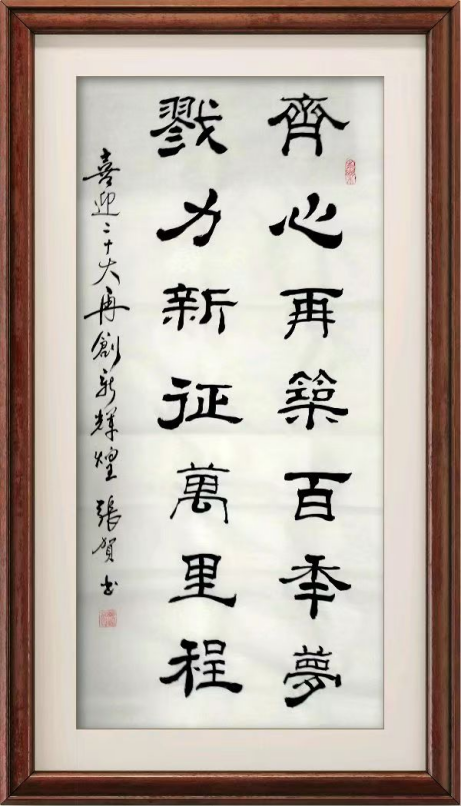 齊心再築百年夢
戮力新征萬里程
喜迎二十大再創新輝煌 張賀書